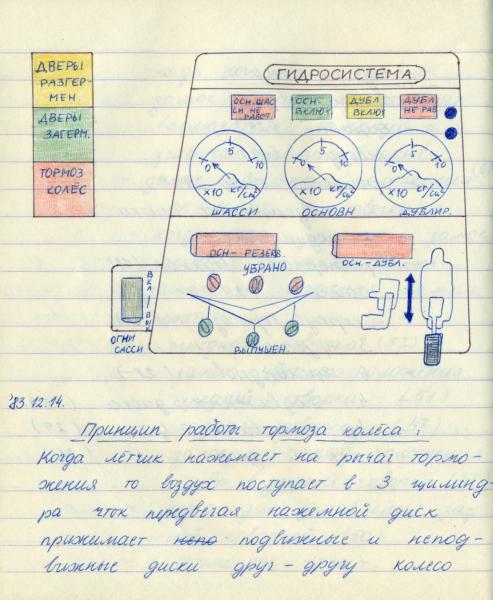 ДВЕРЫ
РАЗГЕР-
МЕН.
ДВЕРЫ
ЗАГЕРМ.
ТОРМОЗ
КОЛЁС
ГИДРОСИСТЕМА
ОСН. ШАС
СИ НЕ
РАБОТ.
ОСН.
ВКЛЮЧ.
ДУБЛ.
ВКЛЮЧ
ДУБЛ.
НЕ РАБ.
0 5 10
×10 кг/см²
ШАССИ
0 5 10
×10 кг/см²
ОСНОВН
0 5 10
×10 кг/см²
ДУБЛИР.
ОСН- РЕЗЕРВ.
ОСН.-ДУБЛ.
УБРАНО
ВЫПУШЕН.
ВКЛ
ОГНИ
САССИ
83.12.14.
Принцип работы тормоза колёса:
Когда лётчик нажемает на рычаг тормо-
жения то воздух поступает в 3 цилинд-
ра чток передвегая нажемной диск
прижимает подвижные и непод-
вижные диски друг-другу колесо